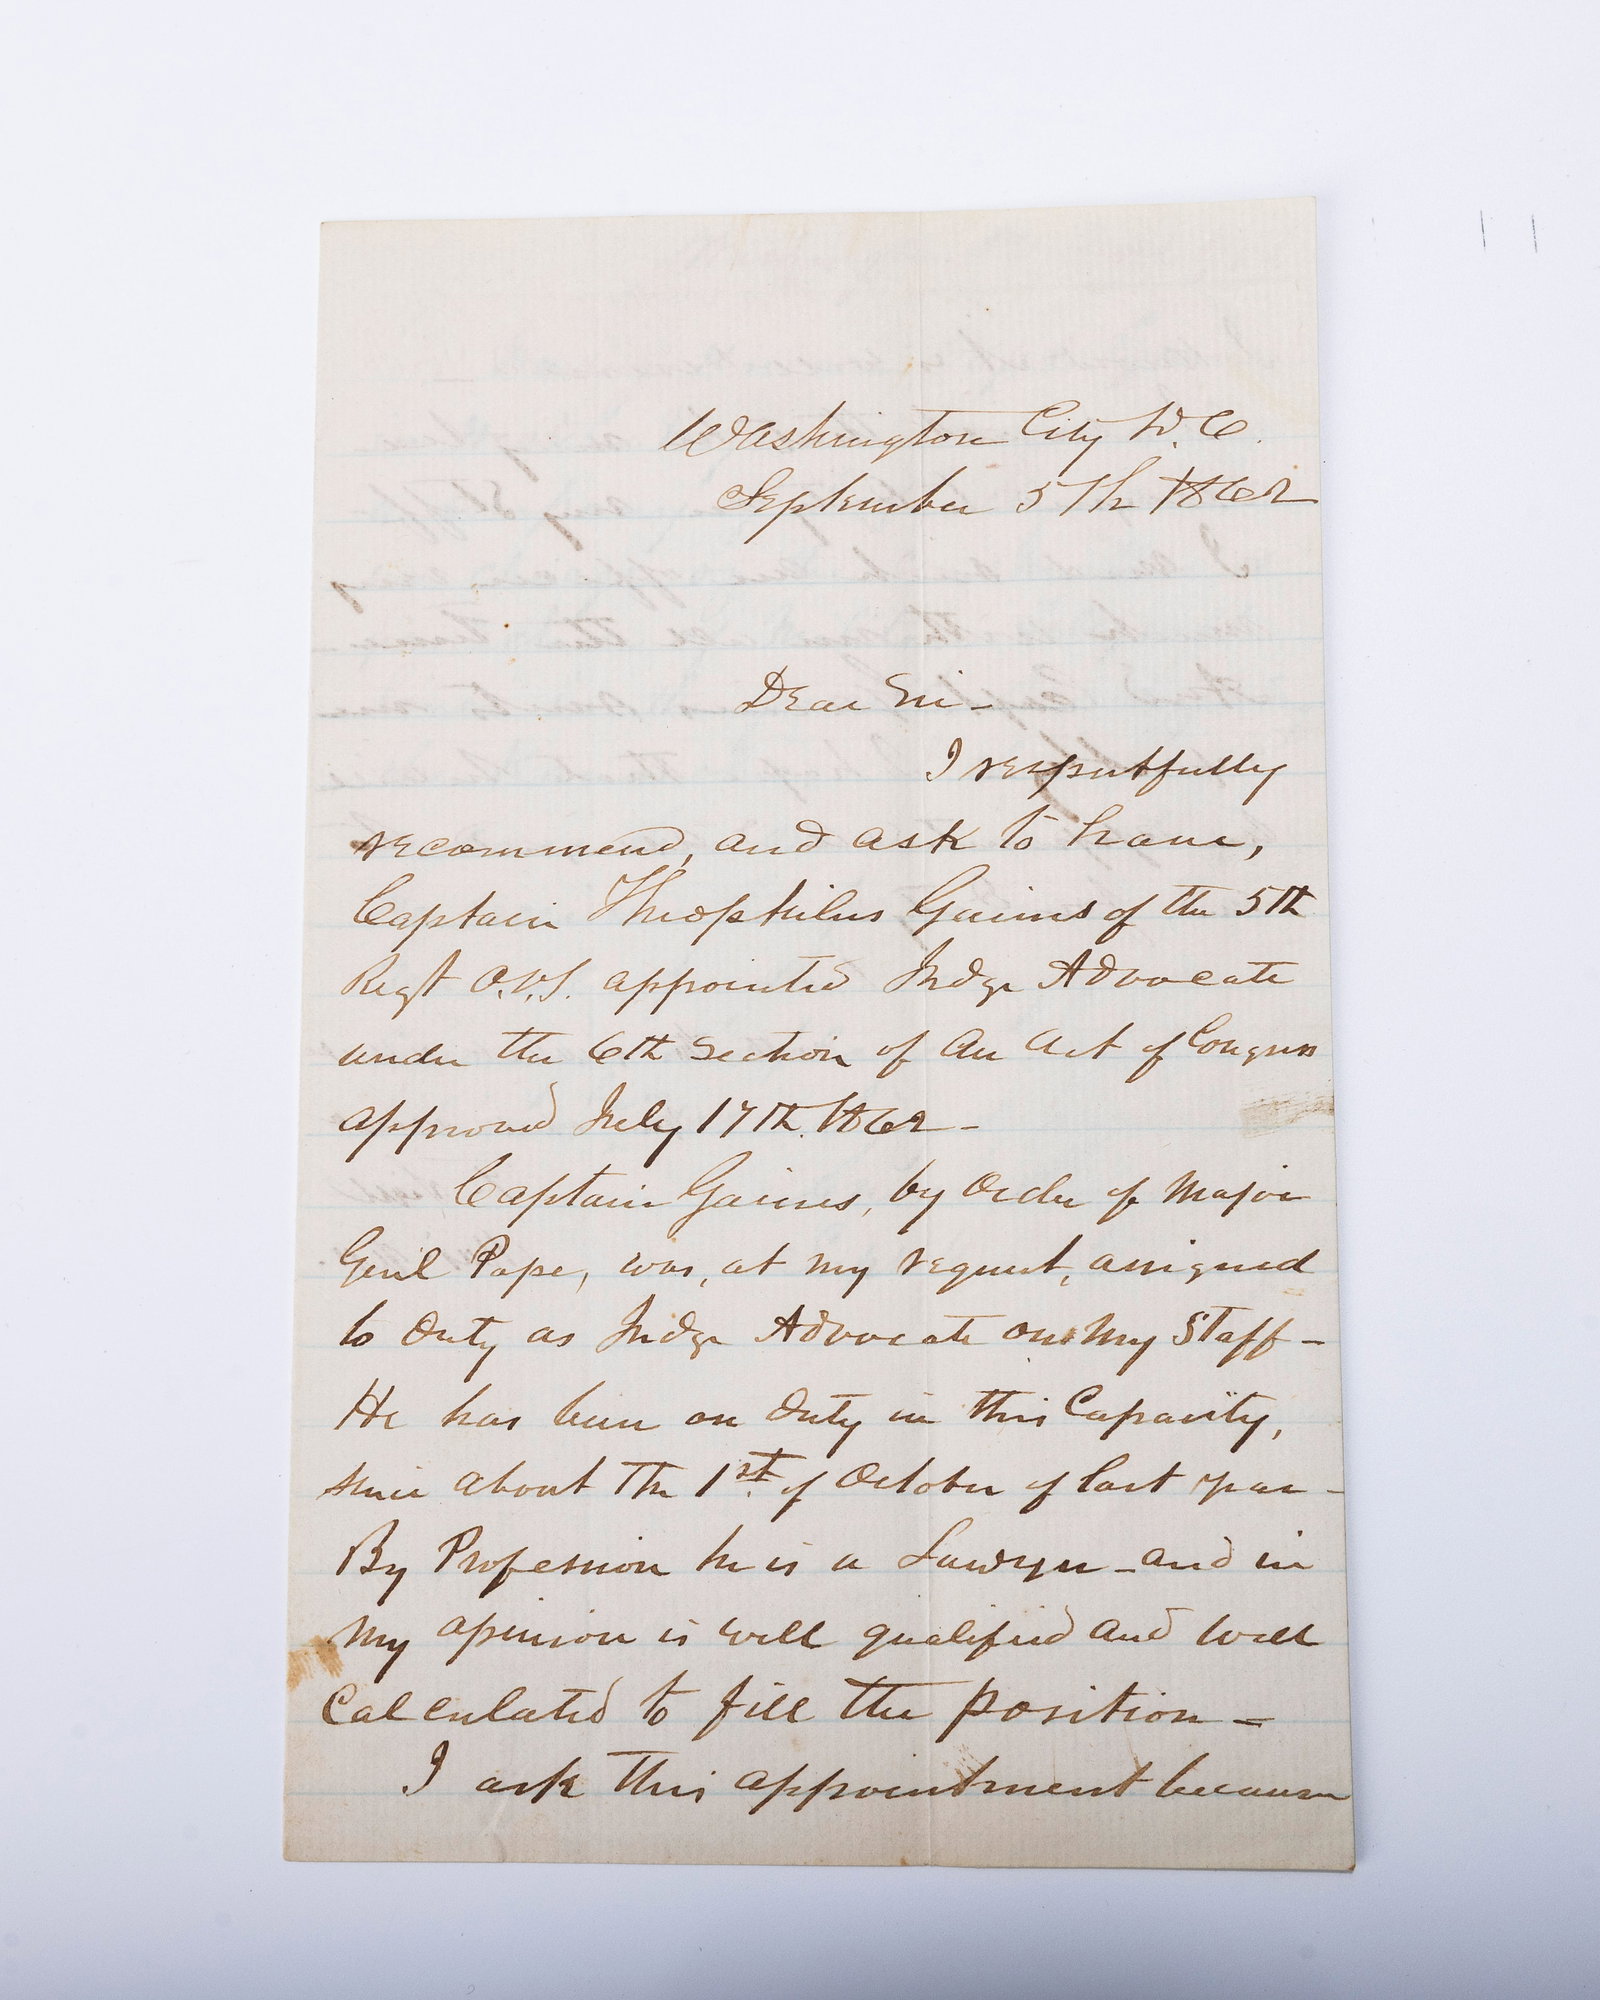 Washington City D.C.
September 5th 1862
Dear Sir -
I respectfully
recommend, and ask to have,
Captain Theophilus Gaines of the 5th
Regt O.V.I. appointed Judge Advocate
under the 6th Section of an act of Congress
approved July 17th. 1862 -
Captain Gaines, by order of Major
Genl Pope, was, at my request, assigned
to duty as Judge Advocate on my Staff -
He has been on duty in this Capacity,
since about the 1st. of October of last year -
By Profession he is a Lawyer - and in
my opinion is well qualified and well
Calculated to fill the position -
I ask this appointment because